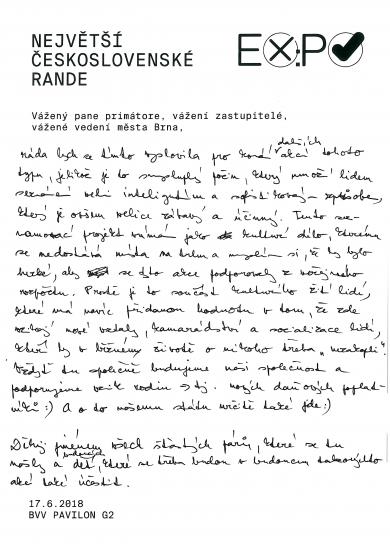 NEJVĚTŠÍ
ČESKOSLOVENSKÉ
RANDE
EXPO
Vážený pane primátore, vážení zastupitelé,
vážené vedení města Brna,
dalších
ráda bych se tímto vyslovila pro konání akcí tohoto
typu, jelikož je to smysluplný počin, který umožní lidem
seznámení velmi inteligentním a sofistikovaným způsobem,
který je ovšem velice zábavný a účinný. Tento
projekt vnímám jako kulturní dílo, kterému
se nedostává místa na trhu a myslím si, že by bylo
hezké, aby se tyto akce podporovaly z veřejného
rozpočtu. Protože je to součást kulturního žití lidí,
které má navíc přidanou hodnotu v tom, že zde
vznikají nové vztahy, kamarádství a socializace lidí,
kteří by v běžném životě o někoho třeba „nezakopli"
Vždyť tu společně budujeme naši společnost a
podporujeme vznik rodin a tj. nových daňových poplat-
níků :) A o to našemu státu určitě také jde :)
Díky jménem všech šťastných párů, které se tu
budoucích
našly a dětí, které se třeba budou v budoucnu takovýchto
akcí také účastnit.
17.6.2018
BVV PAVILON G2